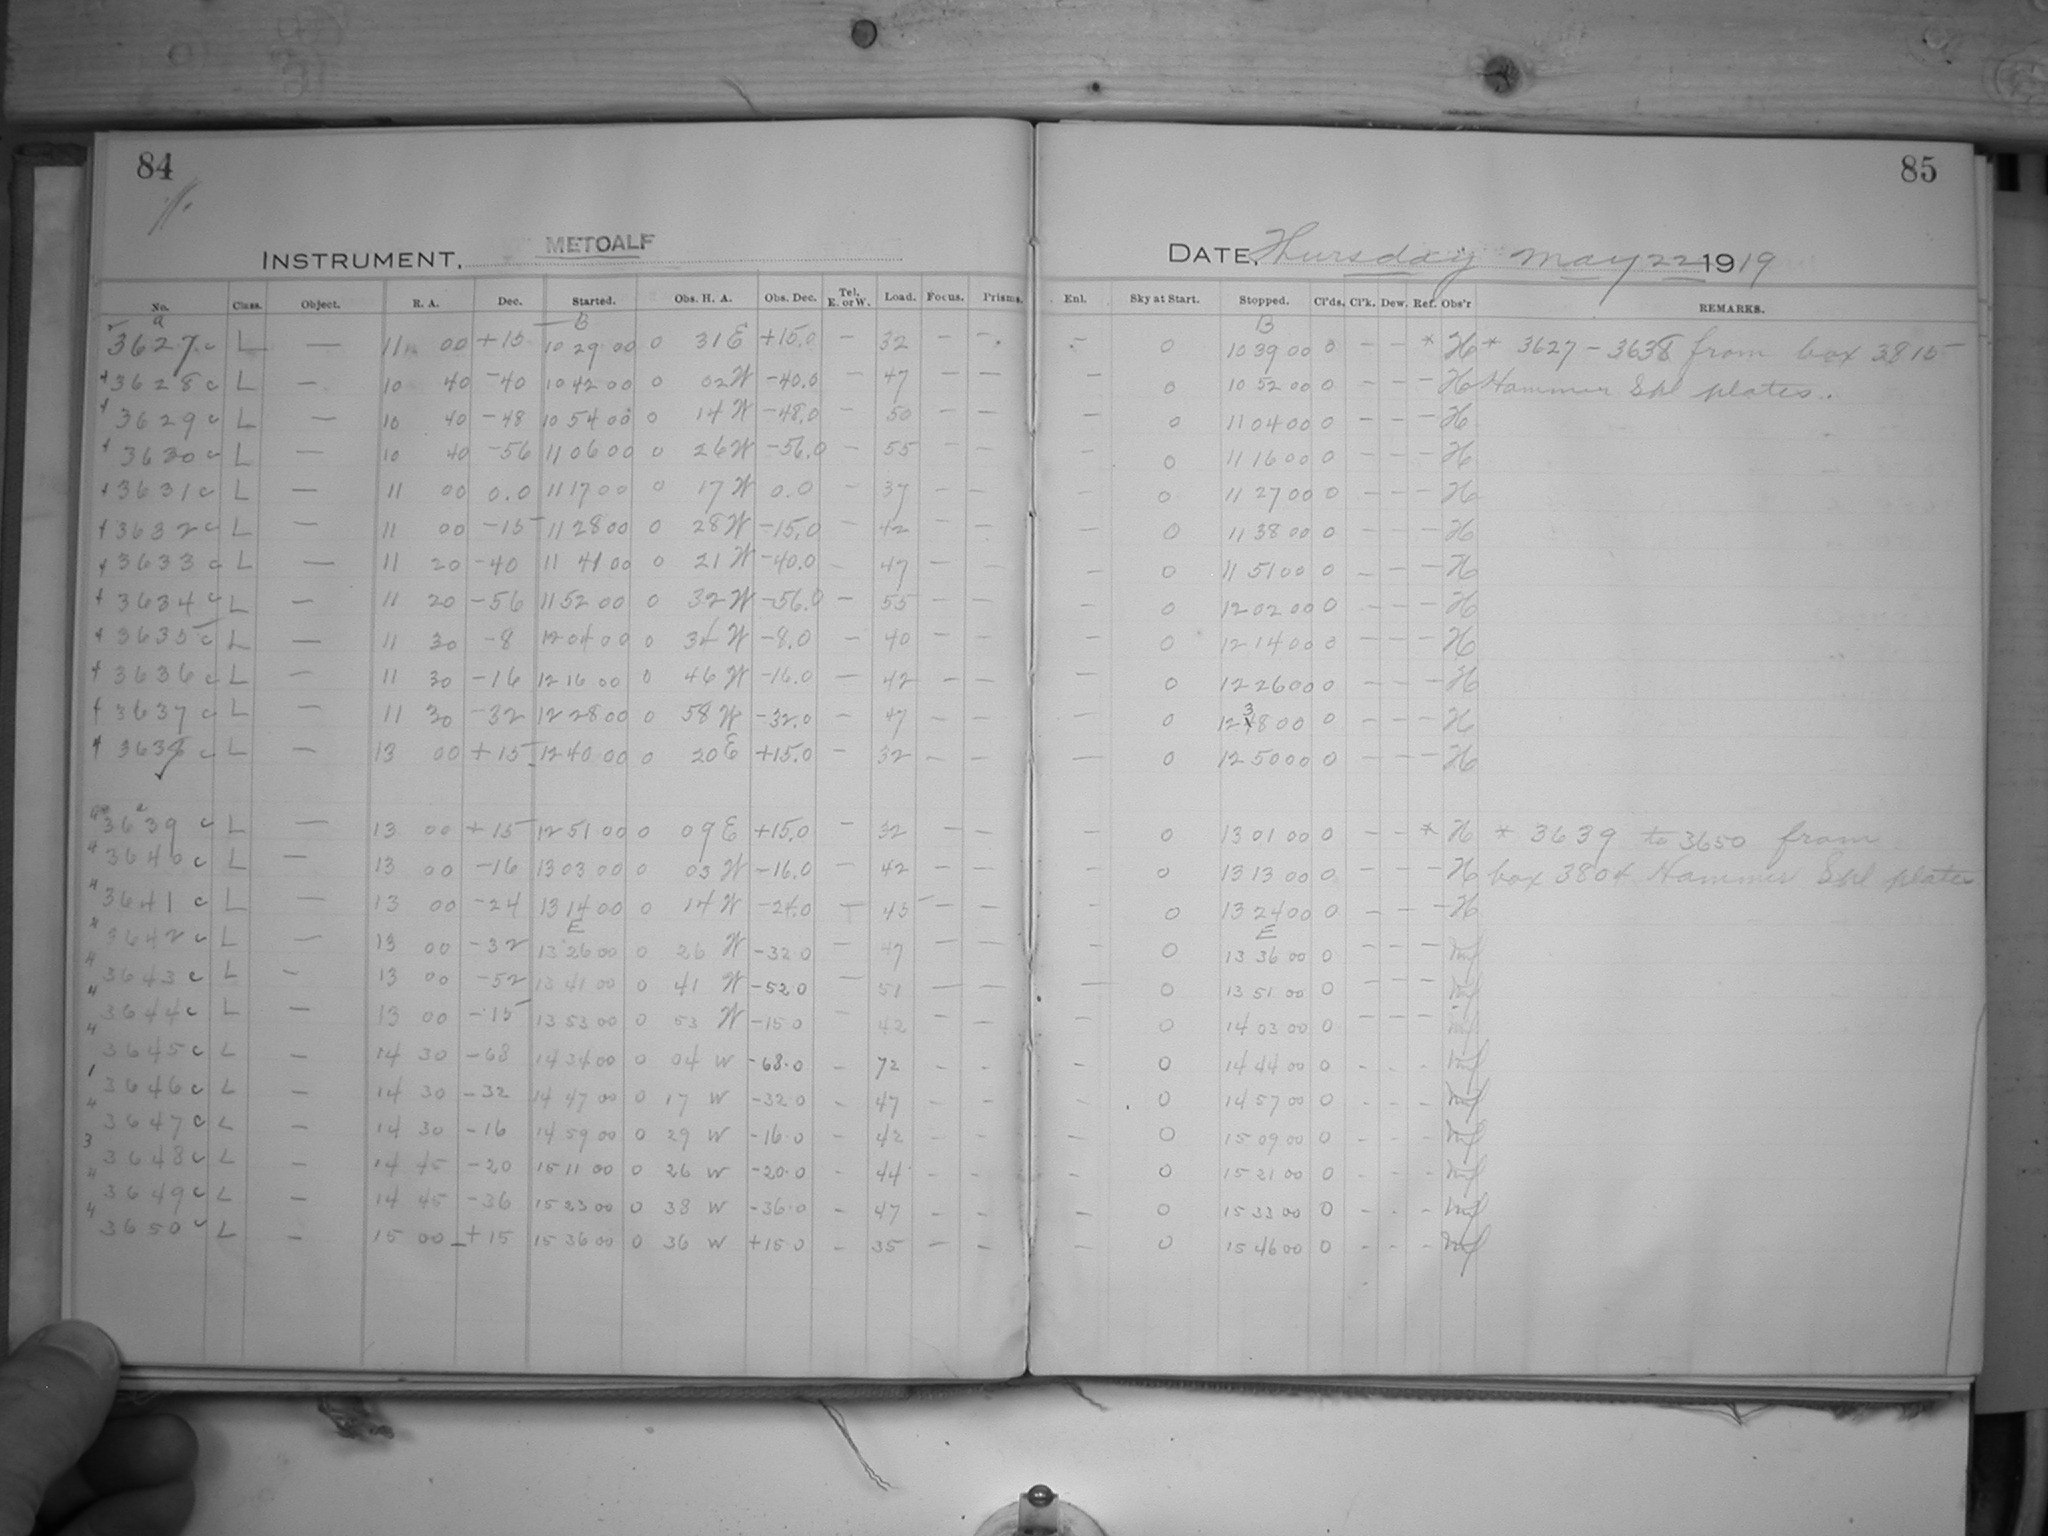 84
85
INSTRUMENT. METCALF
DATE, Thursday May 22 1919
No. Class. Object. R. A. Dec. Started. Obs. H. A. Obs. Dec. Tel. E. or W. Load. Focus. Prisms. Enl. Sky at Start. Stopped. Cl'ds. Cl'k. Dew. Ref. Obs'r REMARKS.
a B B
3627 c L — 11 00 +15 10 29 00 0 31 E +15.0 — 32 — — — 0 10 39 00 0 — — * H * 3627 - 3638 from box 3815
3628 c L — 10 40 -40 10 42 00 0 02 W -40.0 — 47 — — — 0 10 52 00 0 — — — H Hammer Spl plates.
3629 c L — 10 40 -48 10 54 00 0 14 W -48.0 — 50 — — — 0 11 04 00 0 — — — H
3630 c L — 10 40 -56 11 06 00 0 26 W -56.0 — 55 — — — 0 11 16 00 0 — — — H
3631 c L — 11 00 0.0 11 17 00 0 17 W 0.0 — 37 — — — 0 11 27 00 0 — — — H
3632 c L — 11 00 -15 11 28 00 0 28 W -15.0 — 42 — — — 0 11 38 00 0 — — — H
3633 c L — 11 20 -40 11 41 00 0 21 W -40.0 — 47 — — — 0 11 51 00 0 — — — H
3634 c L — 11 20 -56 11 52 00 0 32 W -56.0 — 55 — — — 0 12 02 00 0 — — — H
3635 c L — 11 30 -8 12 04 00 0 34 W -8.0 — 40 — — — 0 12 14 00 0 — — — H
3636 c L — 11 30 -16 12 16 00 0 46 W -16.0 — 42 — — — 0 12 26 00 0 — — — H
3637 c L — 11 30 -32 12 28 00 0 58 W -32.0 — 47 — — 0 12 38 00 0 — — — H
3638 c L — 13 00 +15 12 40 00 0 20 E +15.0 — 32 — — — 0 12 50 00 0 — — — H
3639 c L — 13 00 +15 12 51 00 0 09 E +15.0 — 32 — — 0 13 01 00 0 — — * H * 3639 to 3650 from
3640 c L — 13 00 -16 13 03 00 0 03 W -16.0 — 42 — — — 0 13 13 00 0 — — — H box 3804 Hammer Spl plates
3641 c L — 13 00 -24 13 14 00 0 14 W -24.0 — 45 — — — 0 13 24 00 0 — — — H
E E
3642 c L — 13 00 -32 13 26 00 0 26 W -32.0 — 47 — — — 0 13 36 00 0 — — —
3643 c L — 13 00 -52 13 41 00 0 41 W -52.0 — 51 — — — 0 13 51 00 0 — — —
3644 c L — 13 00 -15 13 53 00 0 53 W -15.0 — 42 — — 0 14 03 00 0 — — —
3645 c L — 14 30 -68 14 34 00 0 04 W -68.0 — 72 - - - 0 14 44 00 0 - - -
3646 c L — 14 30 -32 14 47 00 0 17 W -32.0 — 47 - - - 0 14 57 00 0 - - -
3647 c L — 14 30 -16 14 59 00 0 29 W -16.0 — 42 - - - 0 15 09 00 0 - - -
3648 c L — 14 45 -20 15 11 00 0 26 W -20.0 — 44 - - - 0 15 21 00 0 - - -
3649 c L — 14 45 -36 15 23 00 0 38 W -36.0 — 47 - - 0 15 33 00 0 - - -
3650 c L — 15 00 +15 15 36 00 0 36 W +15.0 — 35 — - - 0 15 46 00 0 - - -